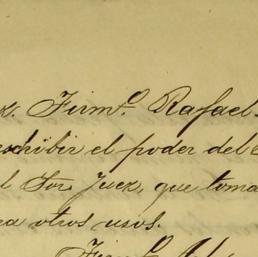 z. Firmo. Rafael
xhibir el poder debe
l Sor. Juez, que toma
ra otros usos.